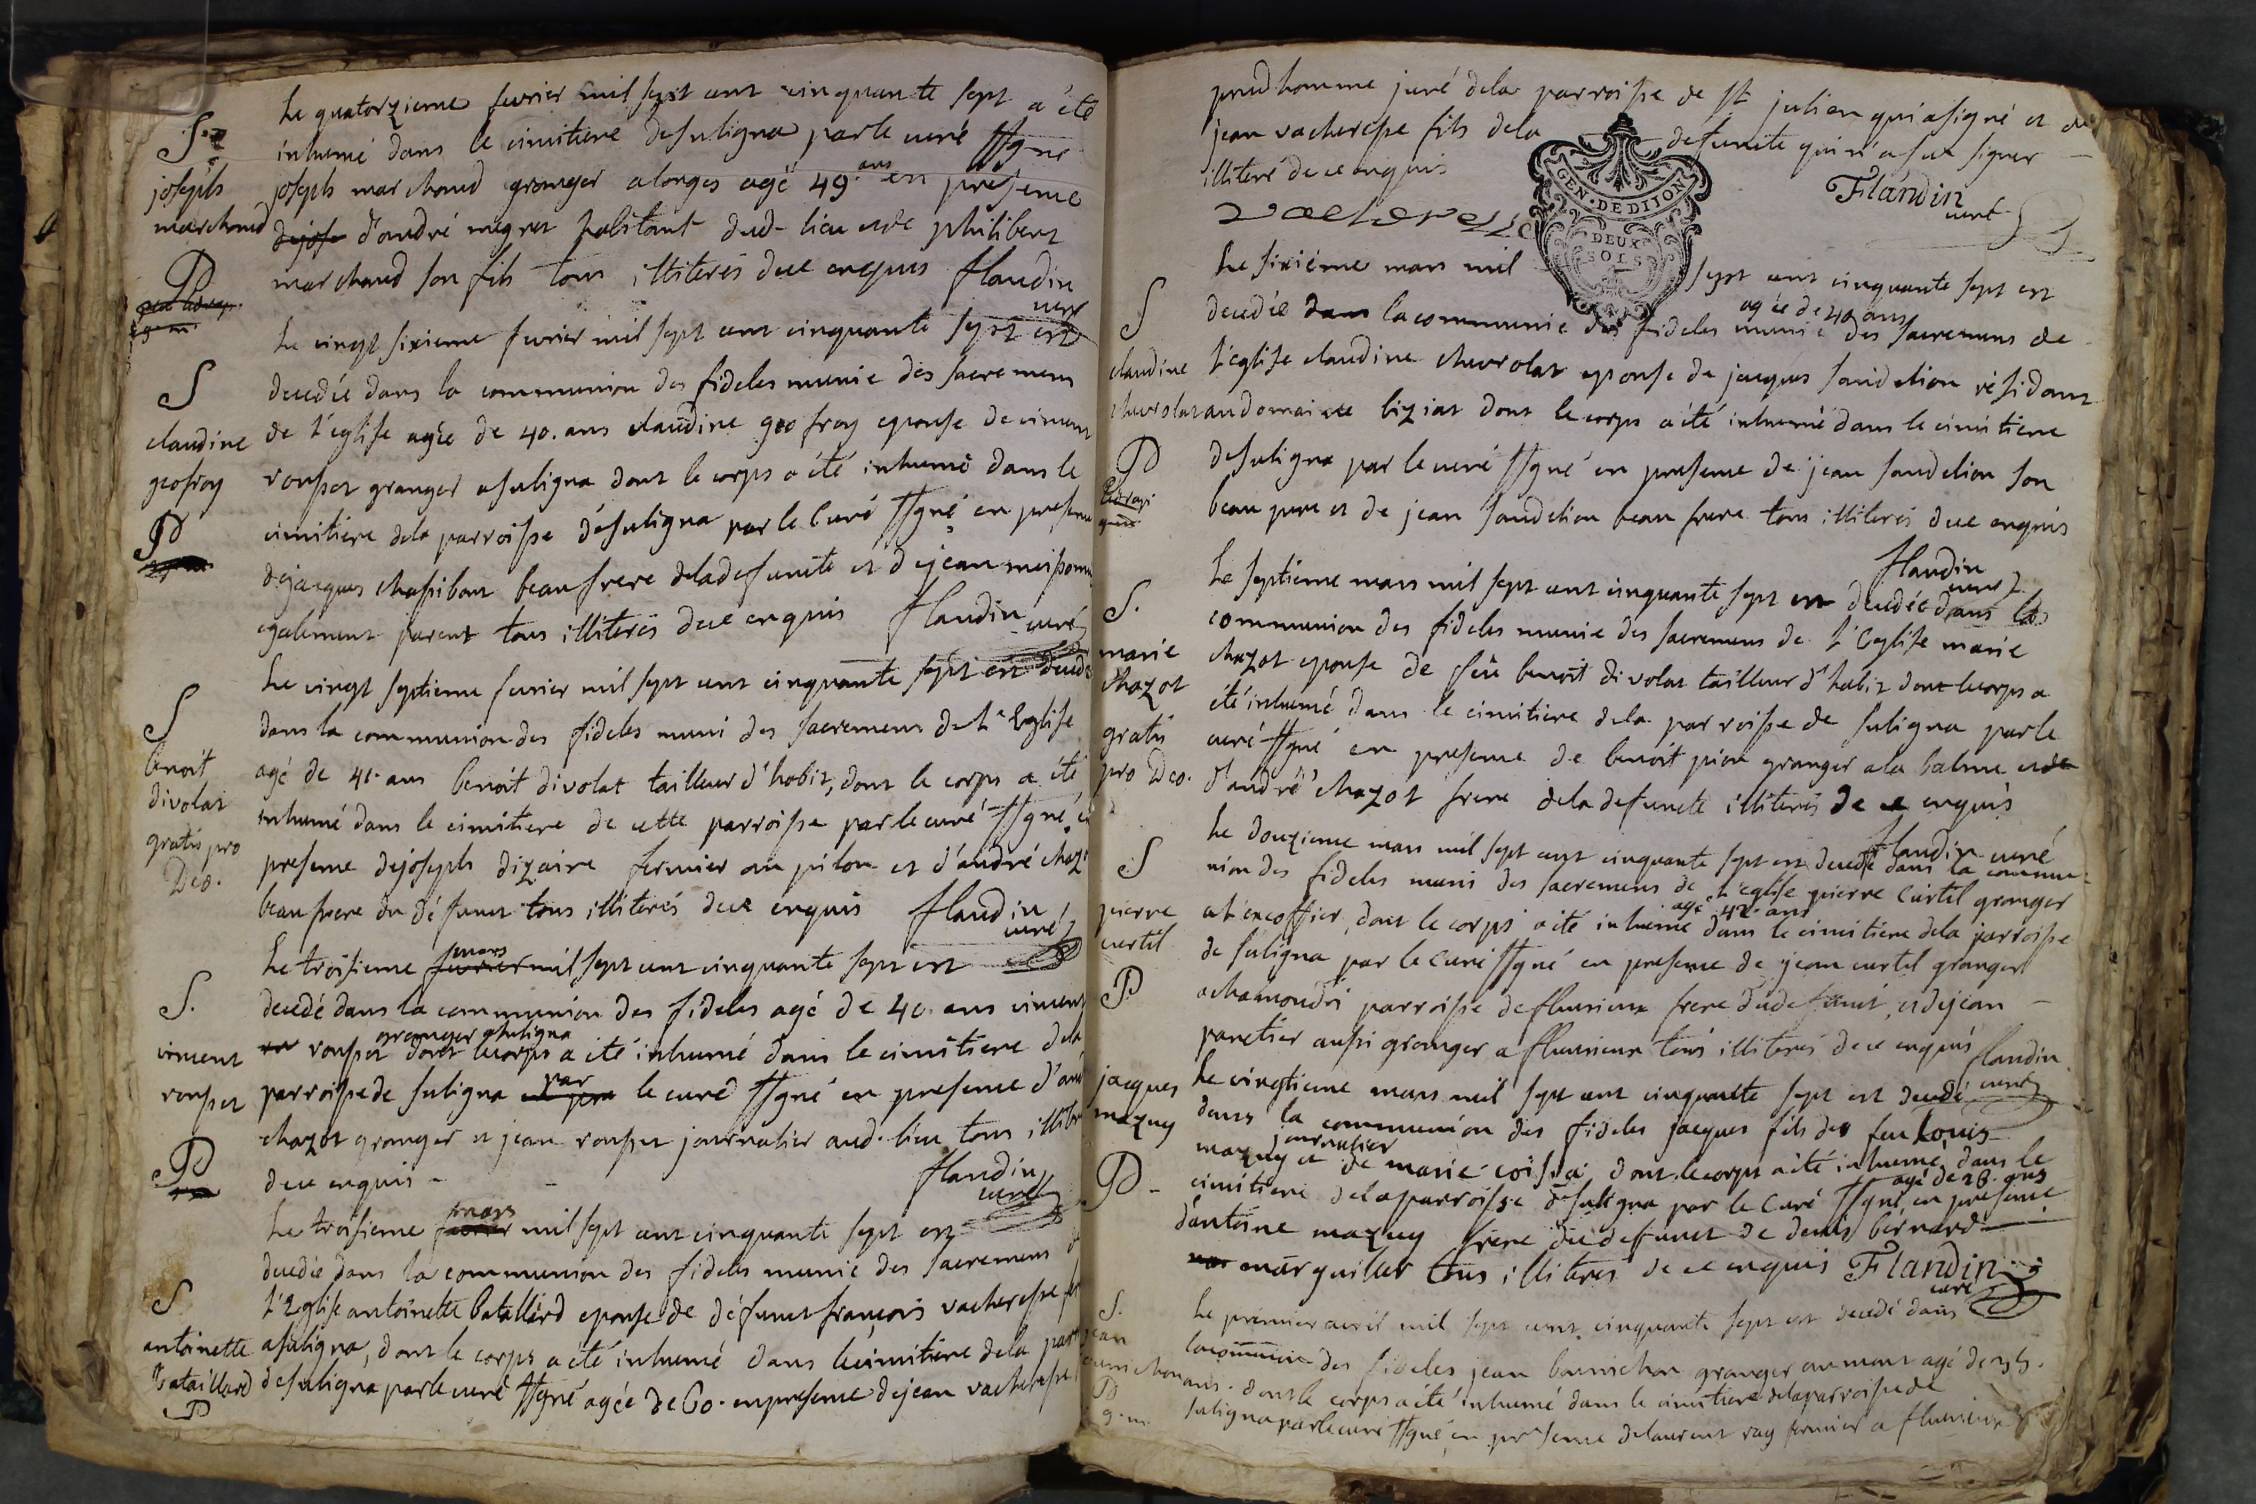 Le quatorzieme fevrier mil sept cent cinquante sept a été
inhumé dans le cimitiere de suligna par le curé ssgné
joseph marchand granger a longes agé 49. ans en presence
d'andré megret habitant dud. lieu et de philibert
marchand son fils tous illiterés de ce enquis flandin
curé
S.
joseph
marchand
P
Le vingt sixieme fevrier mil sept cent cinquante sept est
decedée dans la communion des fideles munie des sacremens
de l'eglise agée de 40. ans claudine geofroy epouse de vincent
rousset granger a suligna dont le corps a été inhumé dans le
cimitiere de la parroisse de suligna par le curé ssgné en presence
de jacques chassibout beaufrere de la defuncte et de jean
egalement parent tous illiterés de ce enquis flandin curé
S
claudine
geofroy
P
Le vingt septieme fevrier mil sept cent cinquante sept est decedé
dans la communion des fideles muni des sacremens de l'Eglise
agé de 41. ans benoit divolat tailleur d'habit, dont le corps a été
inhumé dans le cimitiere de cette parroisse par le curé ssgné, en
presence de joseph dizaire fermier au pilon et d'andré chaz
beaufrere du défunct tous illiterés de ce enquis flandin
curé
S
benoit
divolat
gratis pro
Deo.
Le troisieme fevrier mars mil sept cent cinquante sept est
decedé dans la communion des fideles agé de 40. ans vincent
rousset granger a suligna dont le corps a été inhumé dans le cimitiere de la
parroisse de suligna par le curé ssgné en presence d'andré
chazot granger et jean rousset journalier aud. lieu tous
de ce enquis - flandin
curé
S.
vincent
rousset
P
Le troisieme fevrier mars mil sept cent cinquante sept est
decedée dans la communion des fideles munie des sacremens de
l'Eglise antoinette batallard epouse de défunct françois vacheresse
a suligna, dont le corps a été inhumé dans le cimitiere de la
de suligna par le curé ssgné agée de 60. en presence de jean vacheresse
S
antoinette
bataillard
P
prudhomme juré de la parroisse de st julien qui a signé et de
jean vacheresse fils de la defuncte qui n'a sut signer
illiteré de ce enquis Flandin
vacheresse curé
GEN. DE DIJON
DEUX
SOLS
Le sixiéme mars mil sept cent cinquante sept est
decedée dans la communion des fideles agée de 40 ans munie des sacremens de
l'eglise claudine chevrolat epouse de jacques sandelion résidant
au domaine biziat dont le corps a été inhumé dans le cimitiere
de suligna par le curé ssgné en presence de jean sandelion son
beau pere et de jean sandelion beau frere tous illiterés de ce enquis
flandin
curé
S
claudine
chevrolat
P
Le septieme mars mil sept cent cinquante sept est decedée dans la
communion des fideles munie des sacremens de l'Eglise marie
chazot epouse de feu benoit divolat tailleur d'habit dont le corps a
été inhumé dans le cimitiere de la parroisse de suligna par le
curé ssgné en presence de benoit pion granger a la balme et de
d'andré chazot frere de la defuncte illiterés de ce enquis
flandin curé
S.
marie
chazot
gratis
pro Deo.
Le douzieme mars mil sept cent cinquante sept est decedé dans la commu-
nion des fideles muni des sacremens de l'eglise pierre curtil granger
agé 42. ans dont le corps a été inhumé dans le cimitiere de la parroisse
de suligna par le curé ssgné en presence de jean curtil granger
a chamoudri parroisse de fluirieux frere du defunct, et de jean -
panetier aussi granger a fluirieux tous illiterés de ce enquis flandin
curé
S
pierre
curtil
P
Le vingtieme mars mil sept cent cinquante sept est decedé
dans la communion des fideles jacques fils de feu Louis
mazuy journalier et de marie dont le corps a été inhumé dans le
cimitiere de la parroisse de suligna par le curé ssgné, agé de 28. ans en presence
d'antoine mazuy frere du defunct de denis bernard
marguiller tous illiterés de ce enquis Flandin
curé
jacques
mazuy
P -
Le premier avril mil sept cent cinquante sept est decedé dans
la communion des fideles jean granger au mont agé de
ans. dont le corps a été inhumé dans le cimitiere de la parroisse de
suligna par le curé ssgné, en presence de laurent ray fermier a fluirieux
S.
jean
P
g. m.